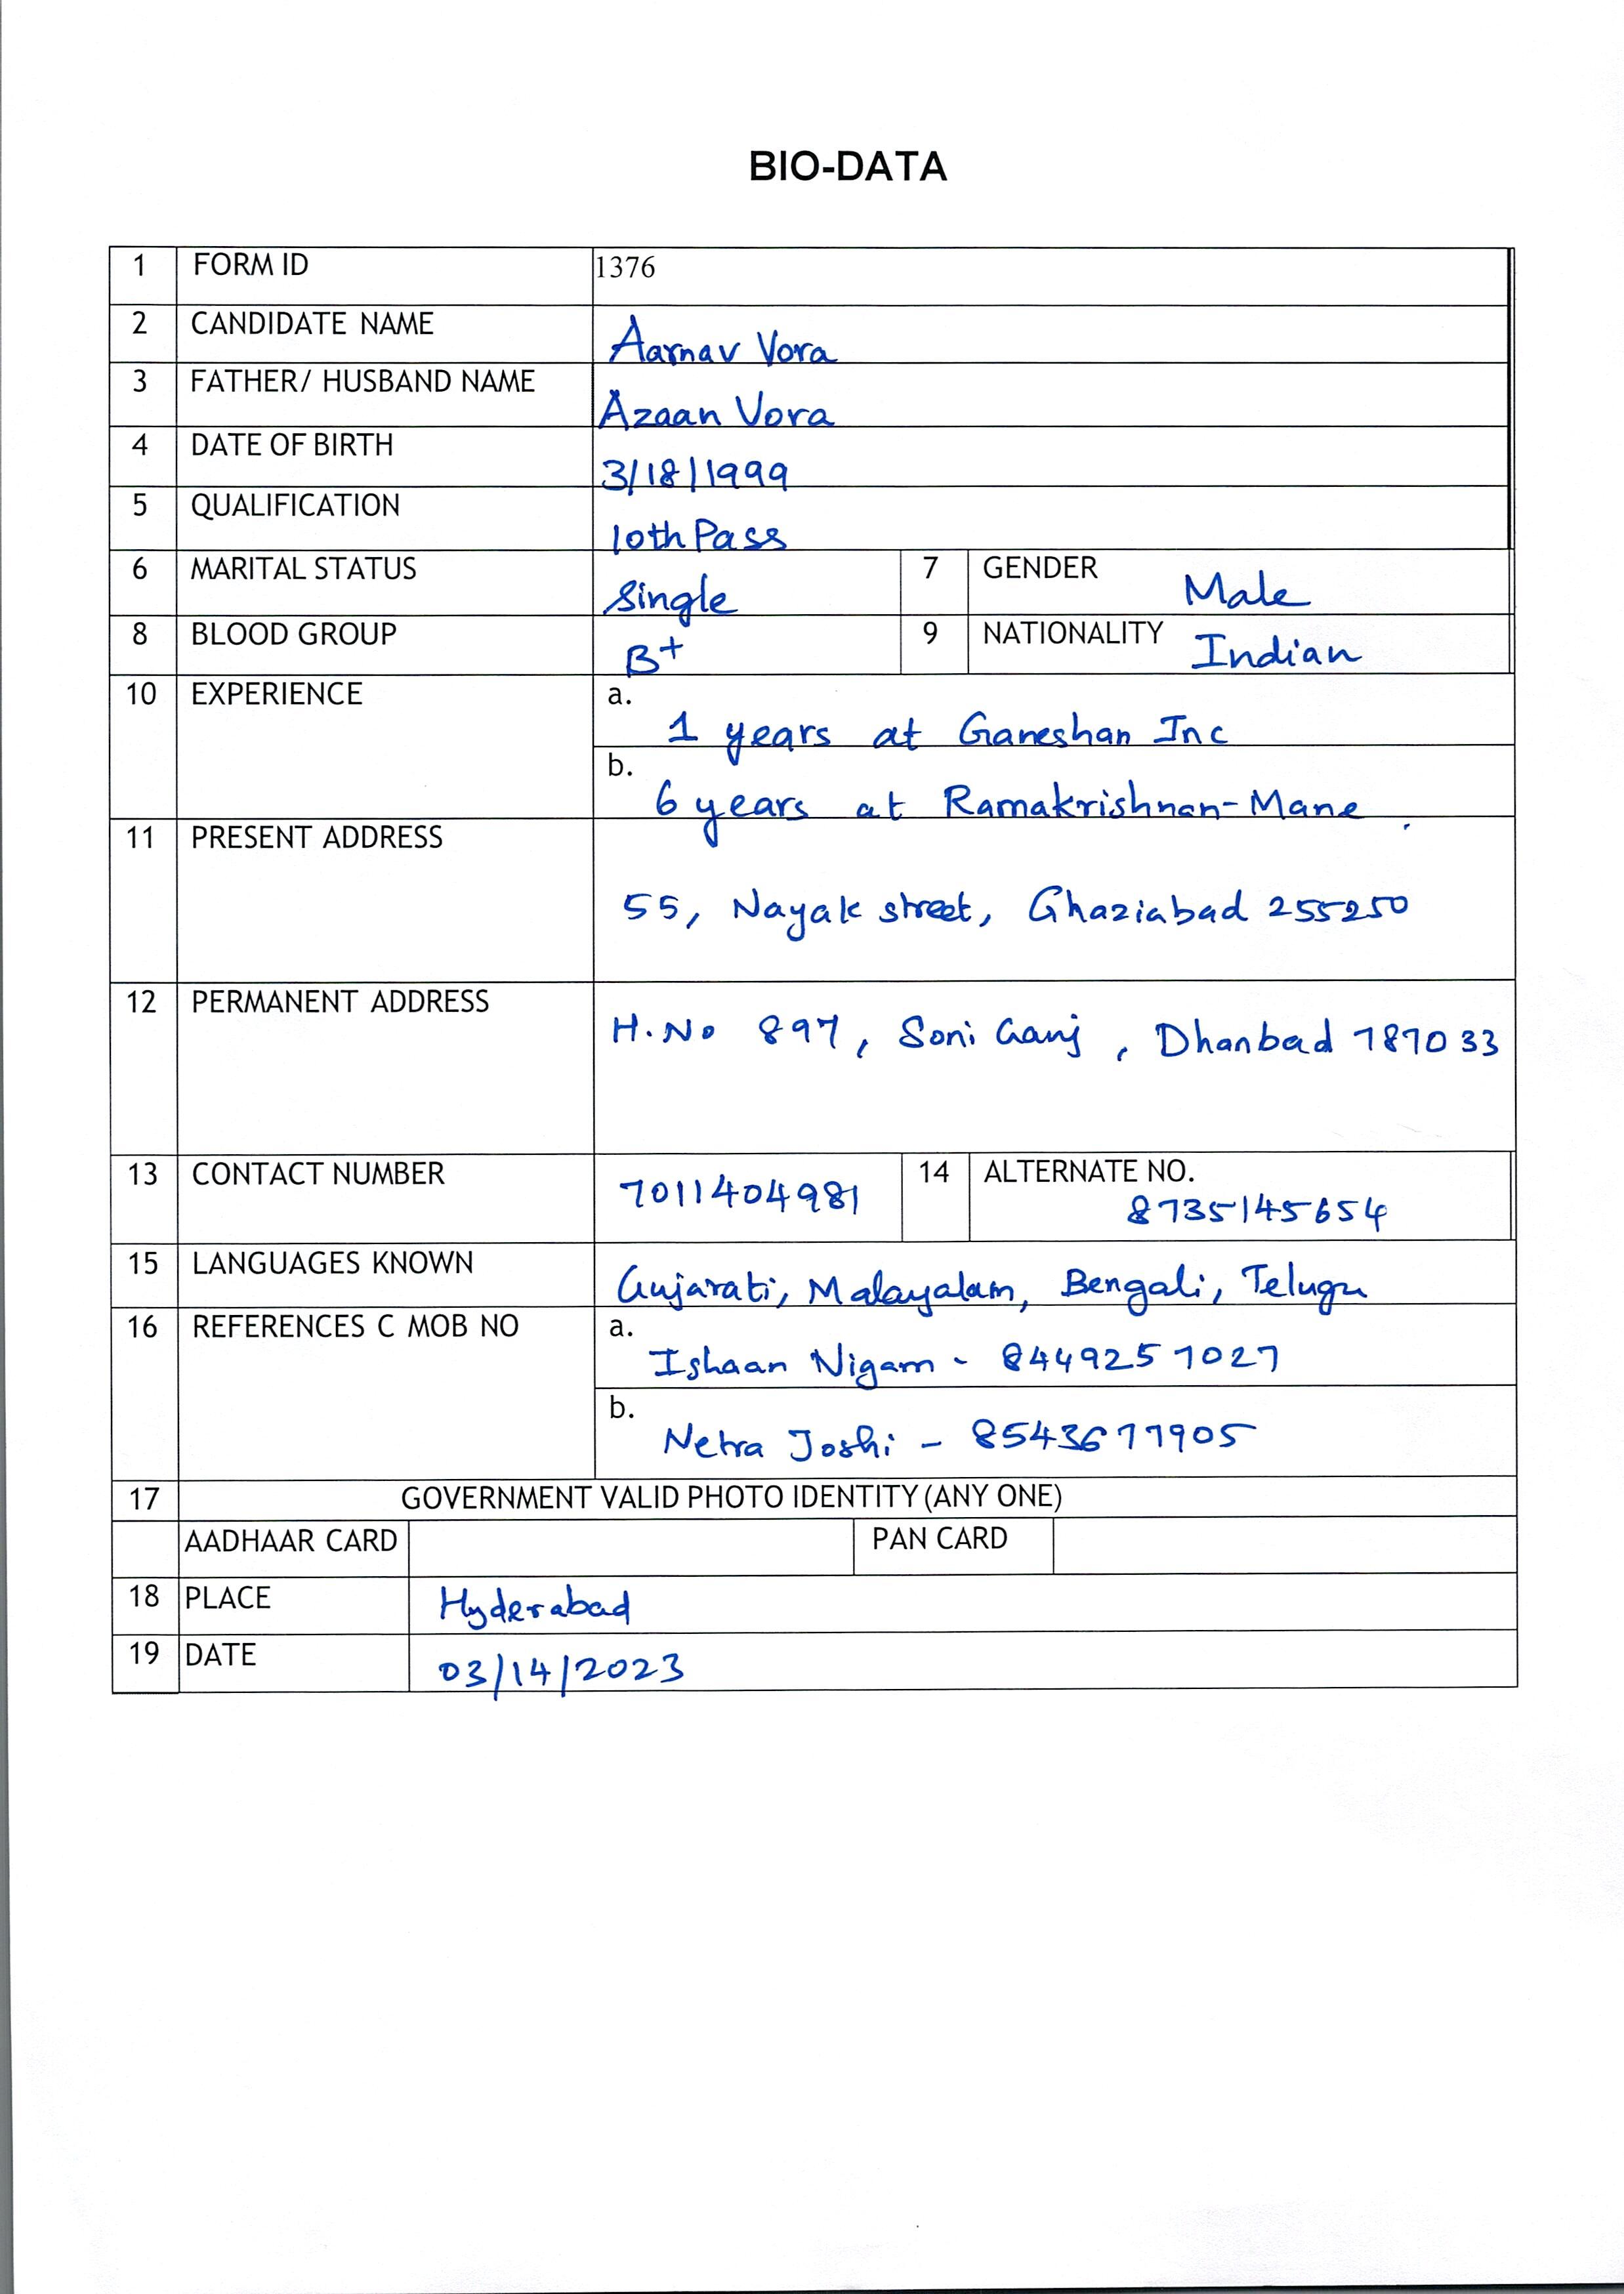 BIO-DATA
1 FORM ID 1376
2 CANDIDATE NAME Aarnav Vora
3 FATHER/ HUSBAND NAME Azaan Vora
4 DATE OF BIRTH 3/18/1999
5 QUALIFICATION 10th Pass
6 MARITAL STATUS Single 7 GENDER Male
8 BLOOD GROUP B+ 9 NATIONALITY Indian
10 EXPERIENCE a. 1 years at Ganeshan Inc
b. 6 years at Ramakrishnan-Mane
11 PRESENT ADDRESS
55, Nayak street, Ghaziabad 255250
12 PERMANENT ADDRESS H.No 897, Soni Ganj, Dhanbad 787033
13 CONTACT NUMBER 7011404981 14 ALTERNATE NO.
8735145654
15 LANGUAGES KNOWN Gujarati, Malayalam, Bengali, Telugu
16 REFERENCES C MOB NO a. Ishaan Nigam - 8449257027
b. Netra Joshi - 8543677905
17 GOVERNMENT VALID PHOTO IDENTITY (ANY ONE)
AADHAAR CARD PAN CARD
18 PLACE Hyderabad
19 DATE 03/14/2023